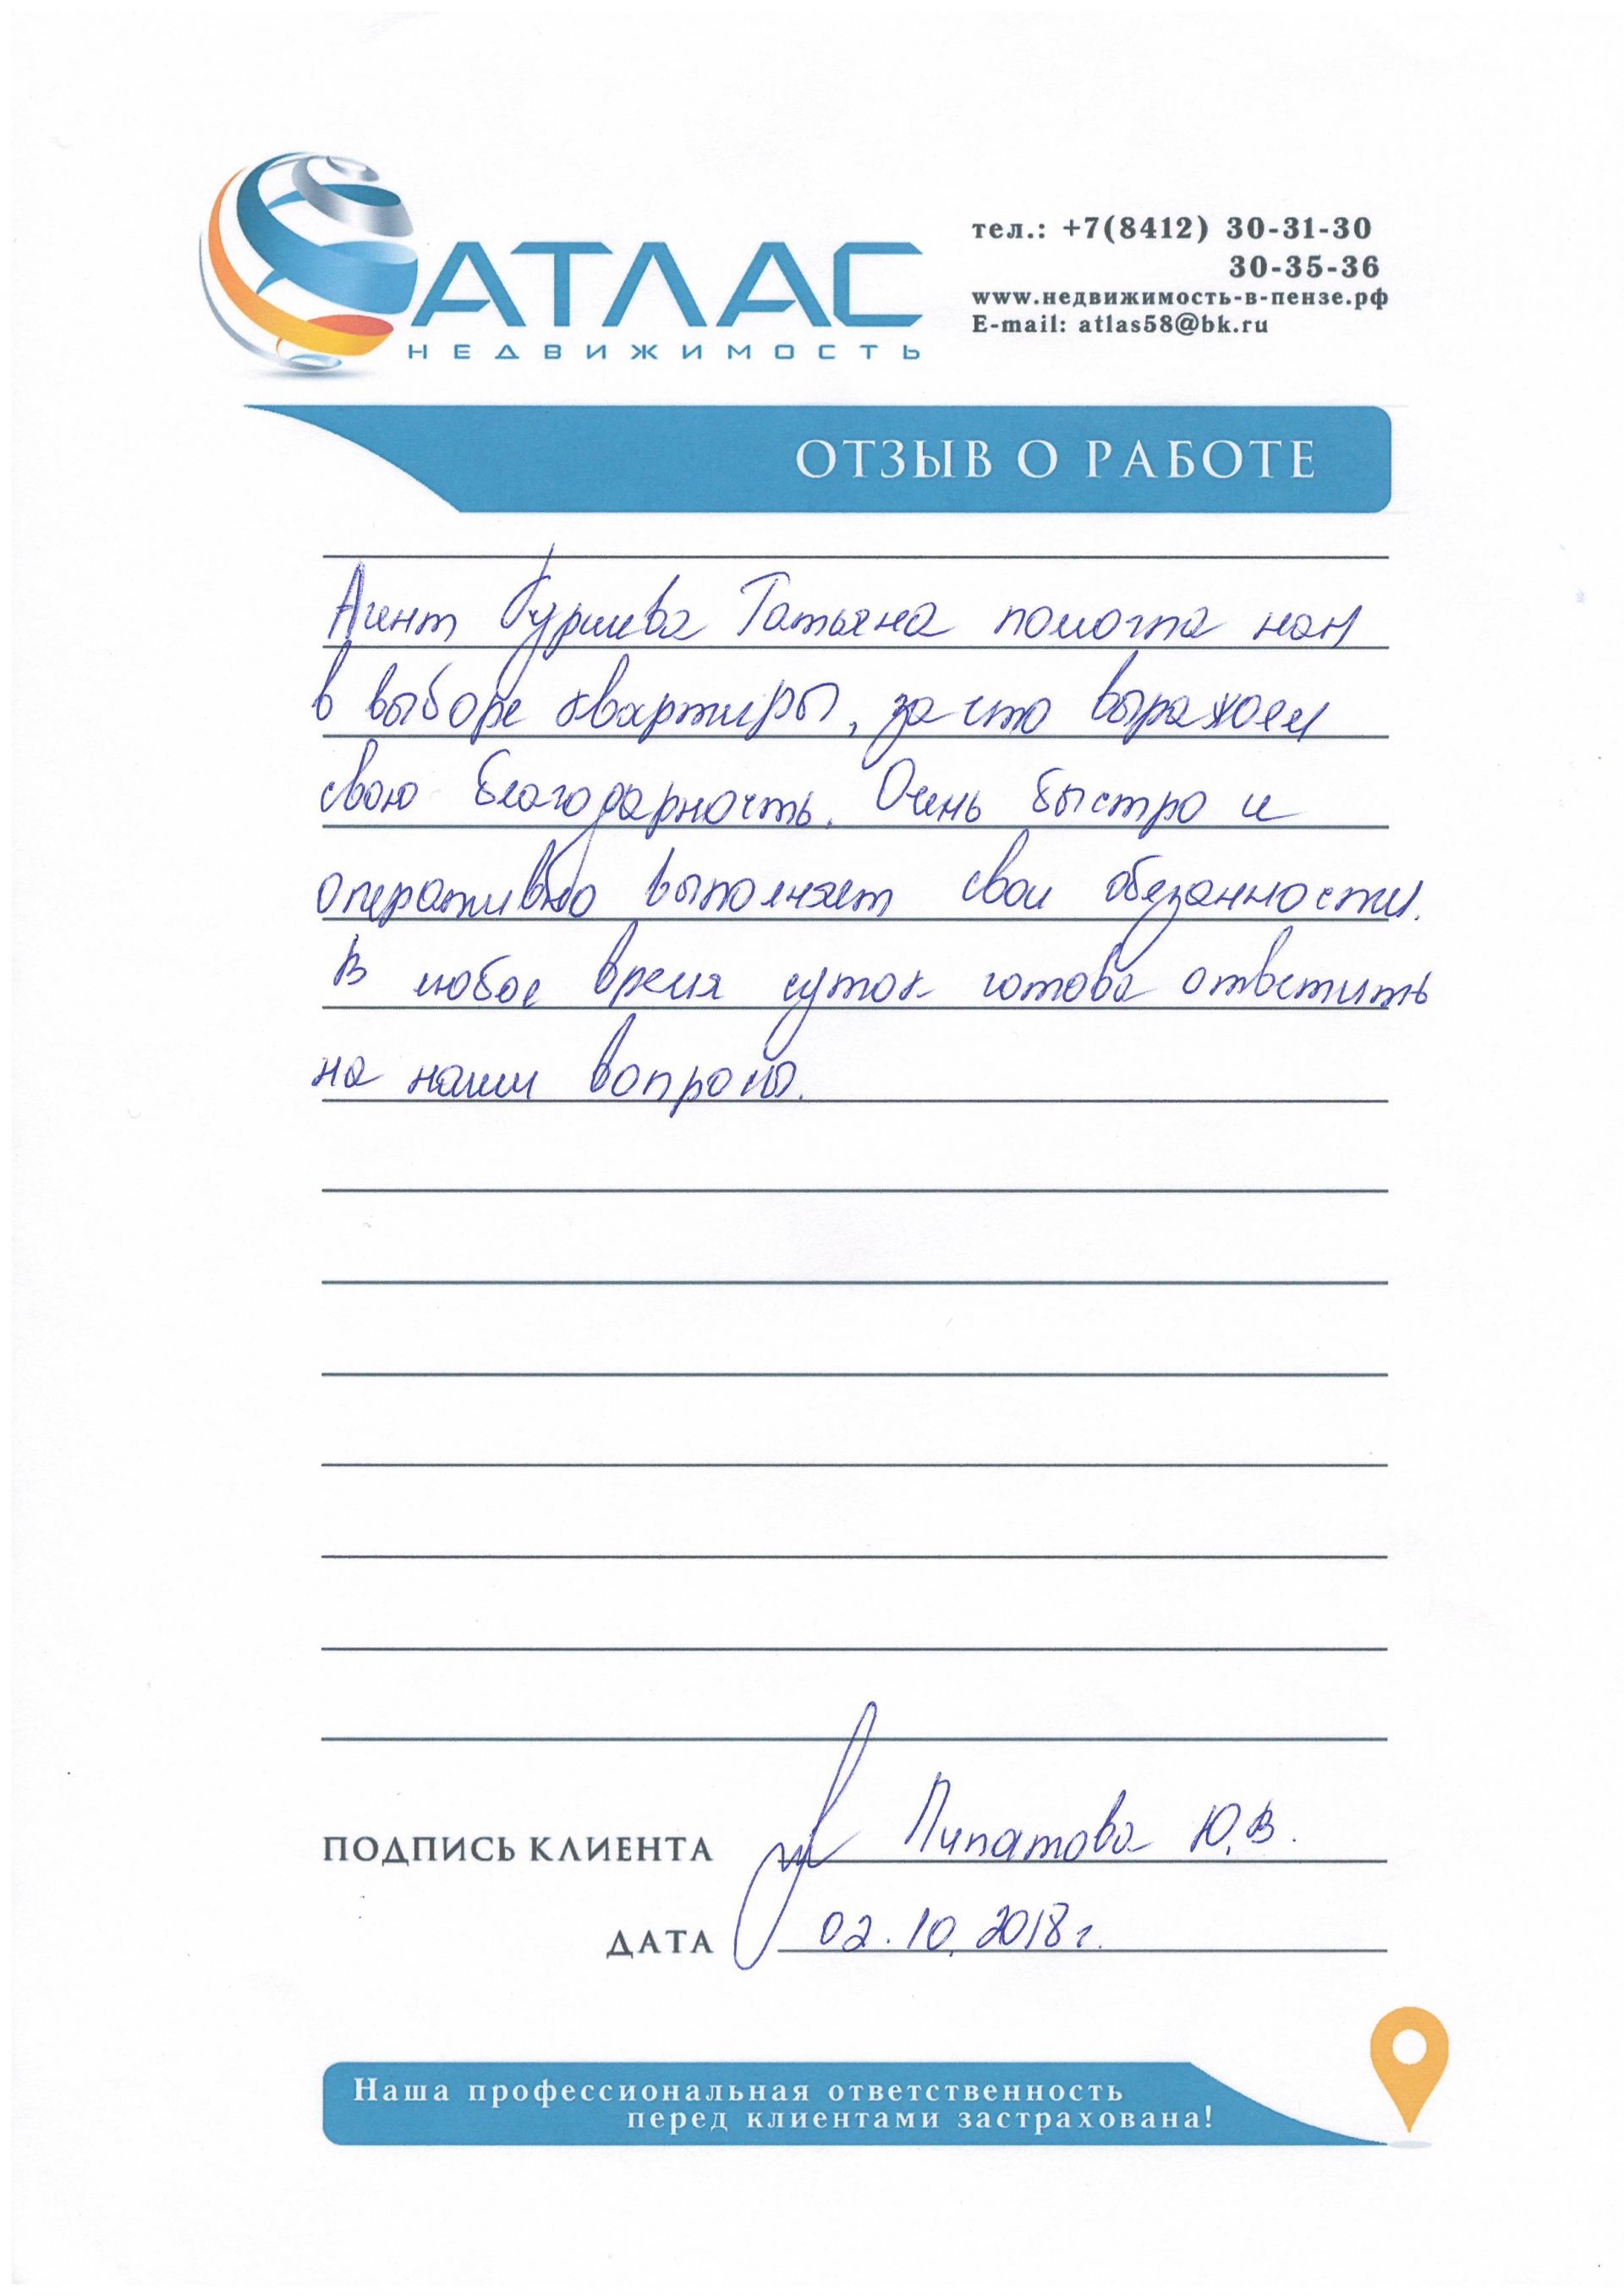 АТЛАС
НЕДВИЖИМОСТЬ
тел.: +7(8412) 30-31-30
30-35-36
www.недвижимость-в-пензе.рф
E-mail: atlas58@bk.ru
ОТЗЫВ О РАБОТЕ
Агент Татьяна помогла нам
в выборе квартиры, за что выражаем
свою благодарность. Очень быстро и
оперативно выполняет свои обязанности.
В любое время суток готова ответить
на наши вопросы.
ПОДПИСЬ КЛИЕНТА Липатова Ю.В.
ДАТА 02.10.2018г.
Наша профессиональная ответственность
перед клиентами застрахована!